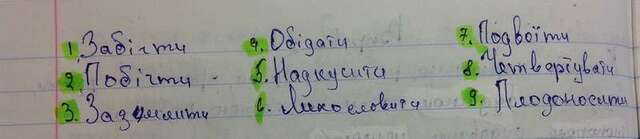 1. Забігти
2. Побігти
3.
4. Обідати
5. Надкусити
6. Лихословити
7. Подвоїти
8. Четвертувати
9. Плодоносити